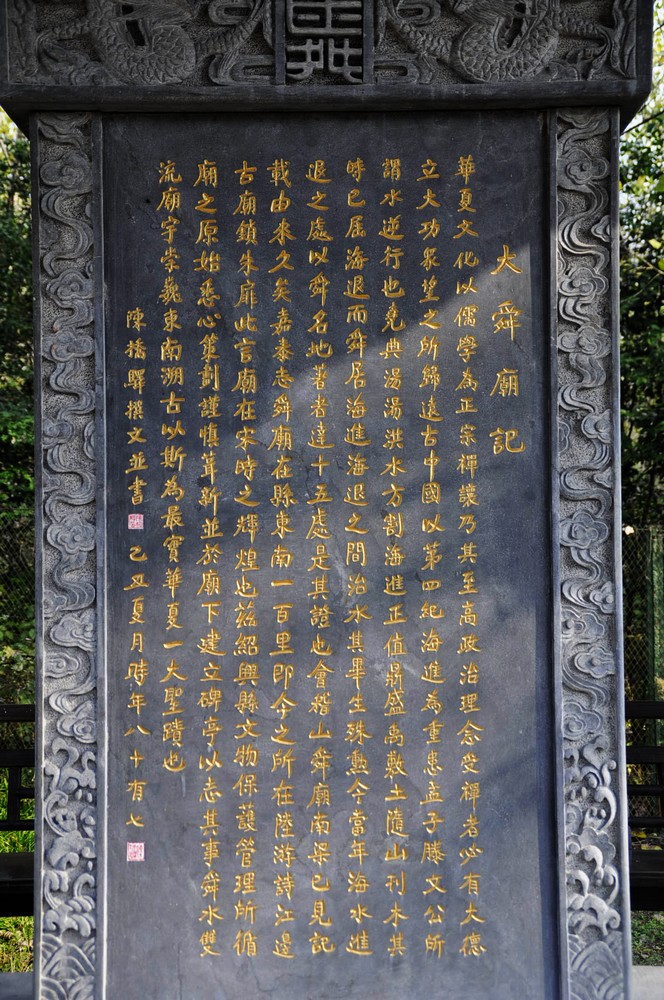 大舜廟記
華夏文化以儒學為正宗禪讓乃其至高政治理念受禪者必有大德
立大功眾望之所歸遠古中國以第四紀海進為重患孟子滕文公所
謂水逆行也堯典湯湯洪水方割海進正值鼎盛禹敷土隨山刊木其
時已屆海退而舜居海進海退之間治水其畢生殊勲今當年海水進
退之處以舜名地著者達十五處是其證也會稽山舜廟南梁已見記
載由來久矣嘉泰志舜廟在縣東南一百里即今之所在陸游詩江邊
古廟鎖朱扉此言廟在宋時之輝煌也茲紹興縣文物保護管理所循
廟之原始悉心策劃謹慎葺新並於廟下建立碑亭以志其事舜水雙
流廟宇崇巍東南溯古以斯為最實華夏一大聖蹟也
陳橋驛撰文並書 己丑夏月時年八十有七